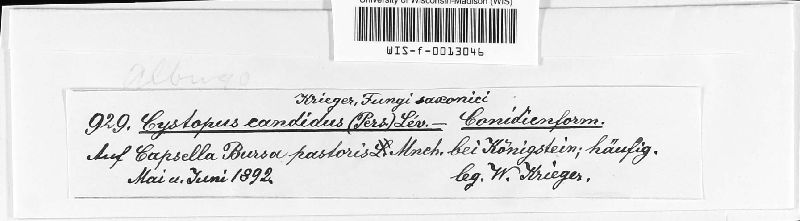 University of Wisconsin-Madison (WIS)
WIS-f-0013046
Albugo
Krieger, Fungi saxonici
929. Cystopus candidus (Pers) Lév. — Conidienform.
Auf Capsella Bursa pastoris Mnch. bei Königstein; häufig.
Mai u. Juni 1892
leg. W. Krieger.